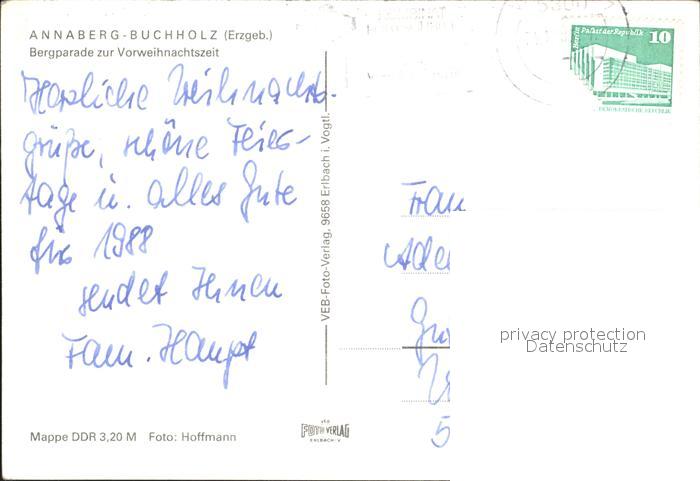 ANNABERG-BUCHHOLZ (Erzgeb.)
Bergparade zur Vorweihnachtszeit
Herzliche Weihnachts-
grüße, schöne Feier-
tage u. alles Gute
für 1988
sendet Ihnen
Fam. Haupt
Mappe DDR 3,20 M Foto: Hoffmann
VEB-Foto-Verlag, 9658 Erlbach i. Vogtl.
FOTO VERLAG
ERLBACH/V
Berlin Palast der Republik
10
Frau
5
privacy protection
Datenschutz